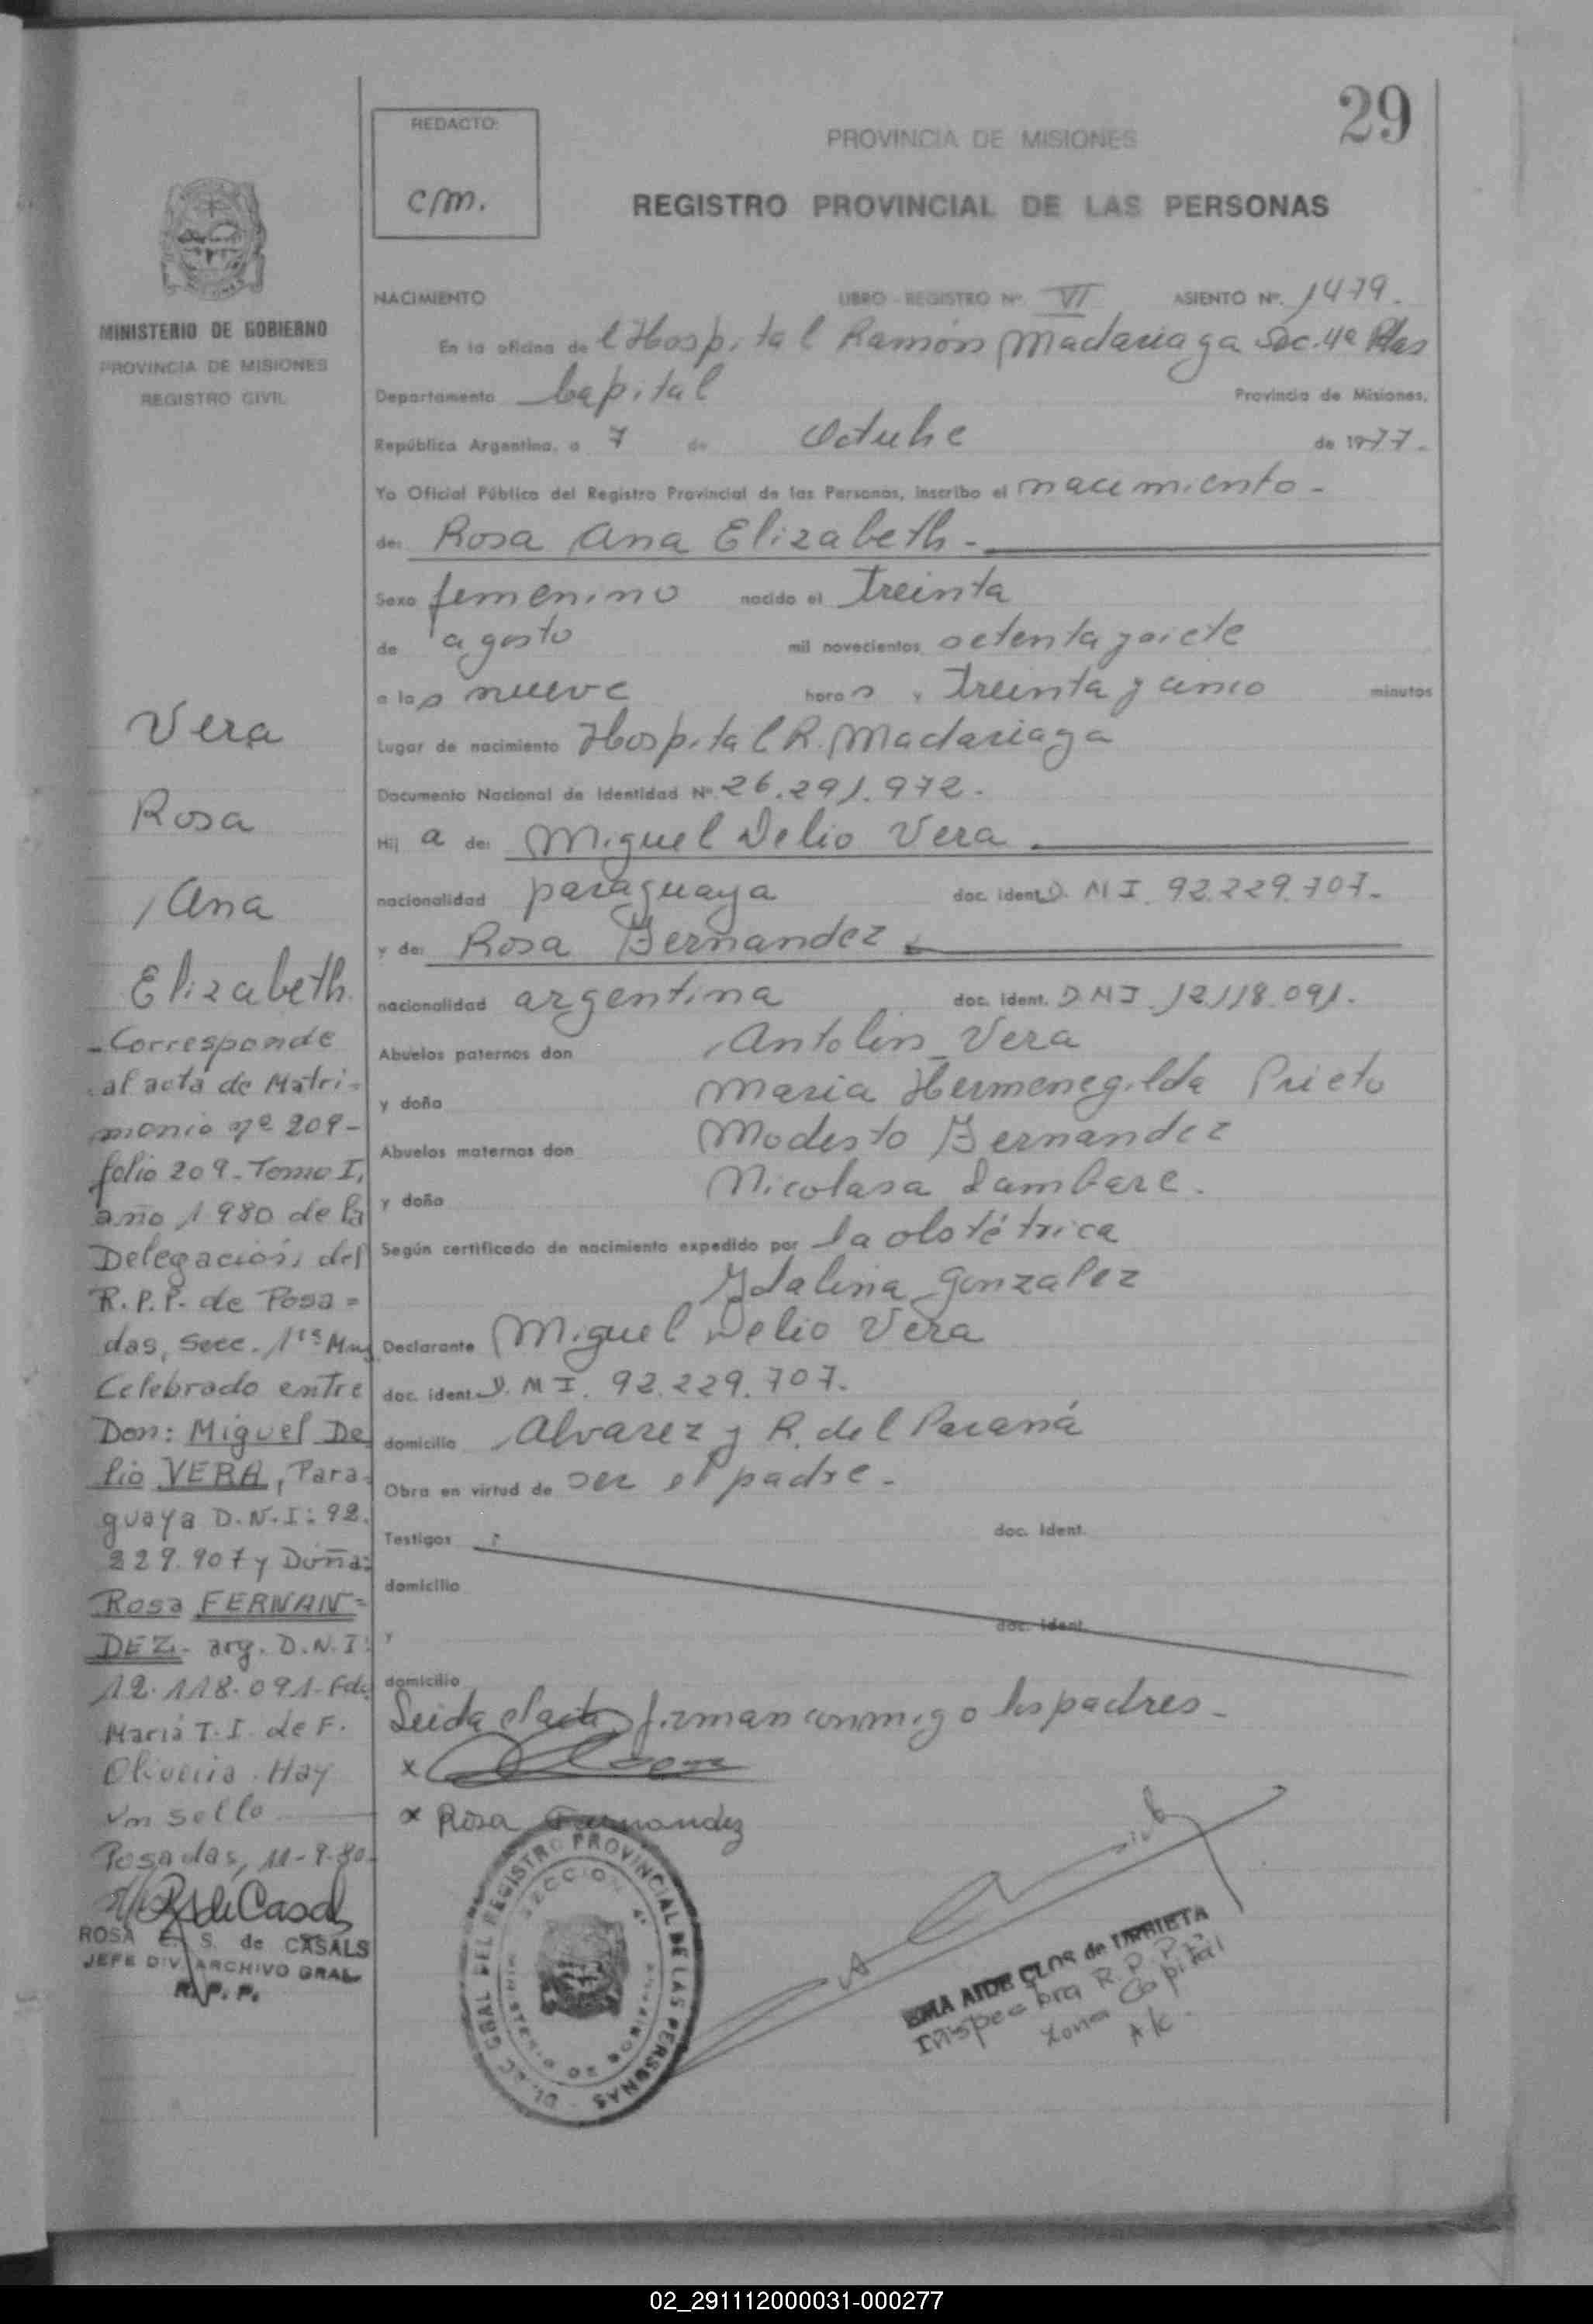 29
REDACTO:
C/M.
PROVINCIA DE MISIONES
REGISTRO PROVINCIAL DE LAS PERSONAS
MINISTERIO DE GOBIERNO
PROVINCIA DE MISIONES
REGISTRO CIVIL
NACIMIENTO LIBRO - REGISTRO Nº. VI ASIENTO Nº. 1479.
En la oficina de l Hospital Ramón Madariaga Sec. 4ª Pdas
Departamento Capital Provincia de Misiones,
República Argentina, a 7 de Octubre de 1977.
Yo Oficial Público del Registro Provincial de las Personas, inscribo el nacimiento -
de: Rosa Ana Elizabeth -
Sexo femenino nacido el treinta
de agosto mil novecientos setenta y siete
a las nueve horas y treinta y cinco minutos
Lugar de nacimiento Hospital R. Madariaga
Documento Nacional de Identidad Nº 26.291.972.
Hij a de: Miguel Delio Vera
nacionalidad paraguaya doc. ident. D.N I. 92.229.707-
y de: Rosa Fernandez
nacionalidad argentina doc. ident. D.N I. 12.118.091.
Abuelos paternos don Antolin Vera
y doña Maria Hermenegilda Prieto
Abuelos maternos don Modesto Fernandez
y doña Nicolasa Lambare.
Según certificado de nacimiento expedido por la obstétrica
Idalina Gonzalez
Declarante Miguel Delio Vera
doc. ident. D. N I. 92.229.707.
domicilio Alvarez y R. del Paraná
Obra en virtud de ser el padre -
Testigos : doc. ident.
domicilio
y doc. ident.
domicilio
Leida el acta, firman conmigo los padres -
x
x Rosa Fernandez
Vera
Rosa
Ana
Elizabeth.
- Corresponde
al acta de Matri-
monio nº 209-
folio 209 - Tomo I,
año 1980 de la
Delegación del
R.P.P. de Posa=
das, Secc. 1ra Mns
Celebrado entre
Don: Miguel De
lio VERA, Para-
guaya D.N.I: 92.
229.907 y Doña:
Rosa FERNAN=
DEZ.- arg. D.N.I:
12.118.091- Fdo
Maria T. I. de F.
Oliveira. Hay
un sello
Posadas, 11-9-80-
ROSA E. S. de CASALS
JEFE DIV. ARCHIVO GRAL
R. P. P.
DEL REGISTRO PROVINCIAL DE LAS PERSONAS
SECCION 4ª
AIDE CLOS de URRIETA
Inspectora R.P.P.
Zona Capital
02_291112000031-000277